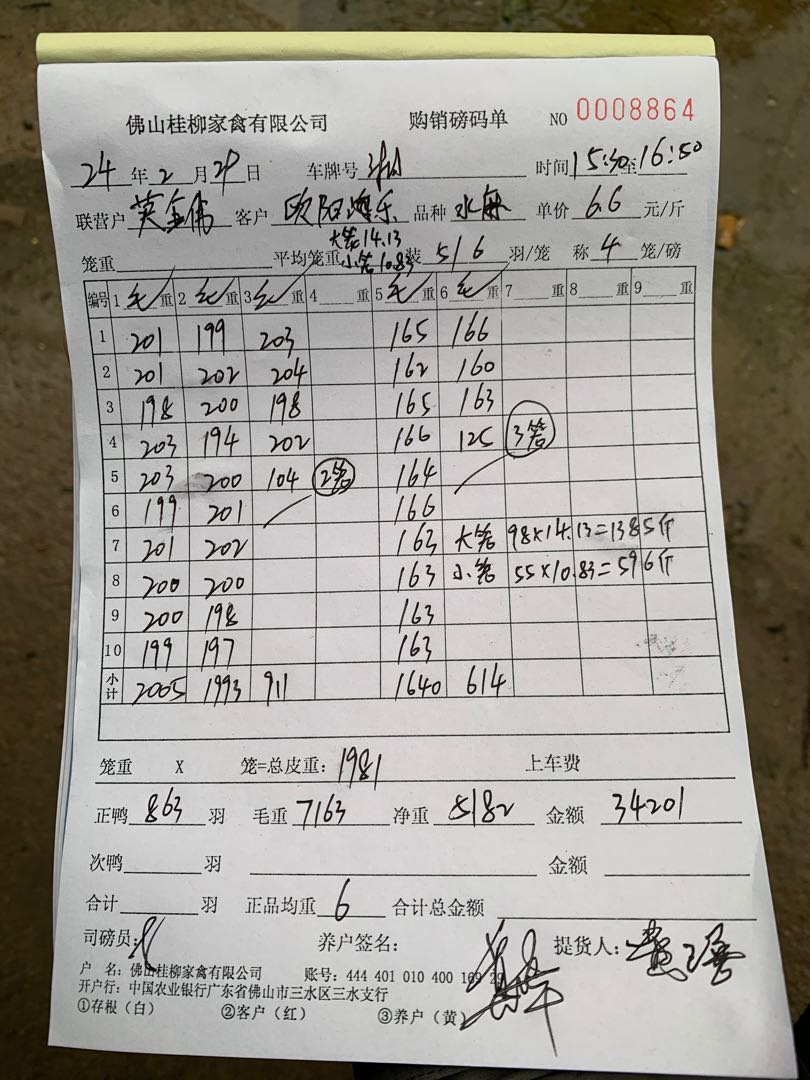 佛山桂柳家禽有限公司 购销磅码单 NO 0008864
24年2月29日 车牌号 时间15:30至16:50
联营户 莫金伟 客户 欧阳海乐 品种 水麻 单价 6.6 元/斤
大笼14.13
笼重 平均笼重 小笼10.83 装 5/6 羽/笼 称 4 笼/磅
编号 1 毛重 2 毛重 3 毛重 4 重 5 毛重 6 毛重 7 重 8 重 9 重
1 201 199 203 165 166
2 201 202 204 162 160
3 198 200 198 165 163
4 203 194 202 166 125 3笼
5 203 200 104 2笼 164
6 199 201 166
7 201 202 163 大笼 98×14.13=1385斤
8 200 200 163 小笼 55×10.83=596斤
9 200 198 163
10 199 197 163
小计 2005 1993 911 1640 614
笼重 X 笼=总皮重:1981 上车费
正鸭 863 羽 毛重 7163 净重 5182 金额 34201
次鸭 羽 金额
合计 羽 正品均重 6 合计总金额
司磅员: 养户签名: 提货人:
户 名:佛山桂柳家禽有限公司 账号:444 401 010 400 169 29
开户行:中国农业银行广东省佛山市三水区三水支行
①存根(白) ②客户(红) ③养户(黄)